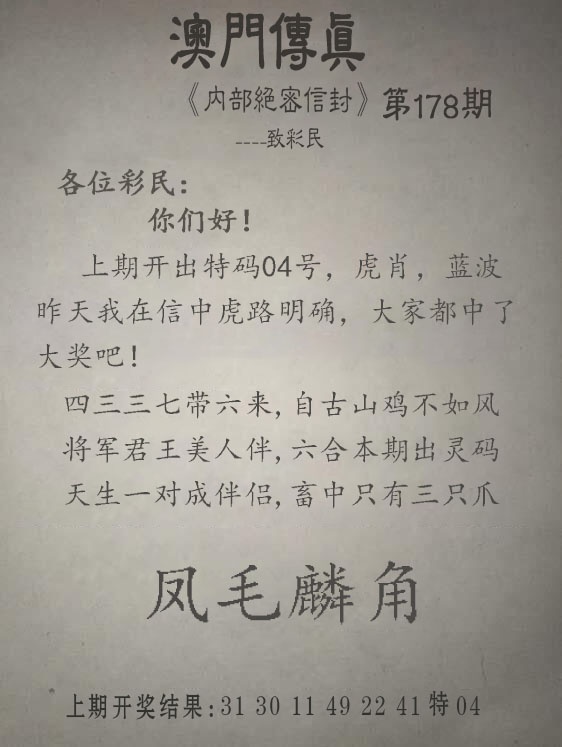 澳門傳眞
《内部絕密信封》第178期
----致彩民
各位彩民：
你们好！
上期开出特码04号，虎肖，蓝波
昨天我在信中虎路明确，大家都中了
大奖吧！
四三三七带六来,自古山鸡不如风
将军君王美人伴,六合本期出灵码
天生一对成伴侣,畜中只有三只爪
凤毛麟角
上期开奖结果:31 30 11 49 22 41特04